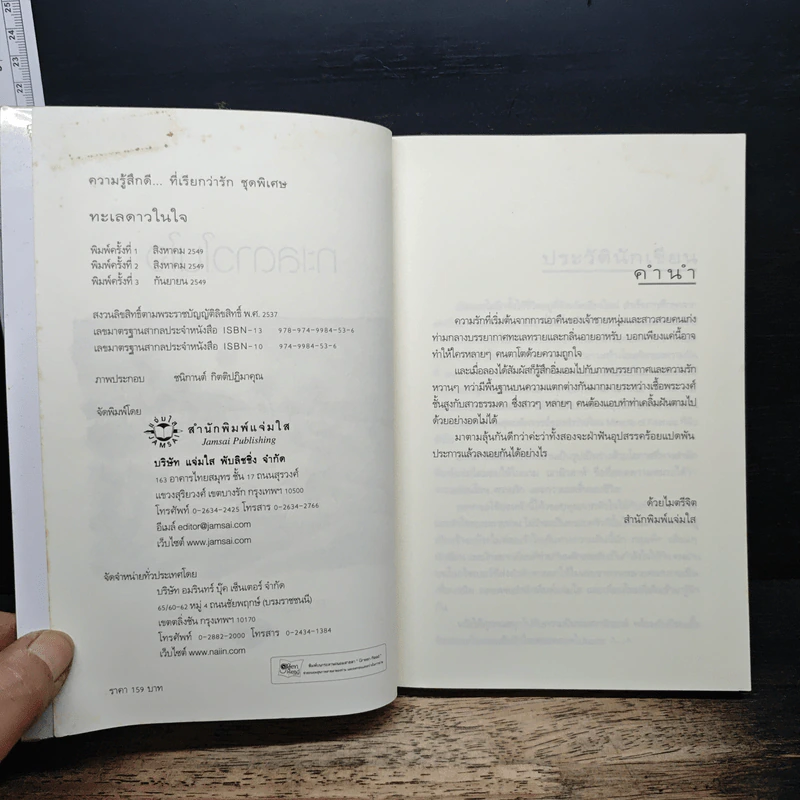 ความรู้สึกดี... ที่เรียกว่ารัก ชุดพิเศษ
ทะเลดาวในใจ
พิมพ์ครั้งที่ 1 สิงหาคม 2549
พิมพ์ครั้งที่ 2 สิงหาคม 2549
พิมพ์ครั้งที่ 3 กันยายน 2549
สงวนลิขสิทธิ์ตามพระราชบัญญัติลิขสิทธิ์ พ.ศ. 2537
เลขมาตรฐานสากลประจำหนังสือ ISBN-13 978-974-9984-53-6
เลขมาตรฐานสากลประจำหนังสือ ISBN-10 974-9984-53-6
ภาพประกอบ ชนิกานต์ กิตติปฏิมาคุณ
จัดพิมพ์โดย
สำนักพิมพ์แจ่มใส
Jamsai Publishing
บริษัท แจ่มใส พับลิชชิ่ง จำกัด
163 อาคารไทยสมุทร ชั้น 17 ถนนสุรวงศ์
แขวงสุริยวงศ์ เขตบางรัก กรุงเทพฯ 10500
โทรศัพท์ 0-2634-2425 โทรสาร 0-2634-2766
อีเมล์ editor@jamsai.com
เว็บไซต์ www.jamsai.com
จัดจำหน่ายทั่วประเทศโดย
บริษัท อมรินทร์ บุ๊ค เซ็นเตอร์ จำกัด
65/60-62 หมู่ 4 ถนนชัยพฤกษ์ (บรมราชชนนี)
เขตตลิ่งชัน กรุงเทพฯ 10170
โทรศัพท์ 0-2882-2000 โทรสาร 0-2434-1384
เว็บไซต์ www.naiin.com
ราคา 159 บาท
คำนำ
ความรักที่เริ่มต้นจากการเอาคืนของเจ้าชายหนุ่มและสาวสวยคนเก่ง
ท่ามกลางบรรยากาศทะเลทรายและกลิ่นอายอาหรับ บอกเพียงแค่นี้อาจ
ทำให้ใครหลายๆ คนตาโตด้วยความถูกใจ
และเมื่อลองได้สัมผัสก็รู้สึกอิ่มเอมไปกับภาพบรรยากาศและความรัก
หวานๆ ทว่ามีพื้นฐานบนความแตกต่างกันมากมายระหว่างเชื้อพระวงศ์
ชั้นสูงกับสาวธรรมดา ซึ่งสาวๆ หลายๆ คนต้องแอบทำท่าเคลิ้มฝันตามไป
ด้วยอย่างอดไม่ได้
มาตามลุ้นกันดีกว่าค่ะว่าทั้งสองจะฝ่าฟันอุปสรรคร้อยแปดพัน
ประการแล้วลงเอยกันได้อย่างไร
ด้วยไมตรีจิต
สำนักพิมพ์แจ่มใส